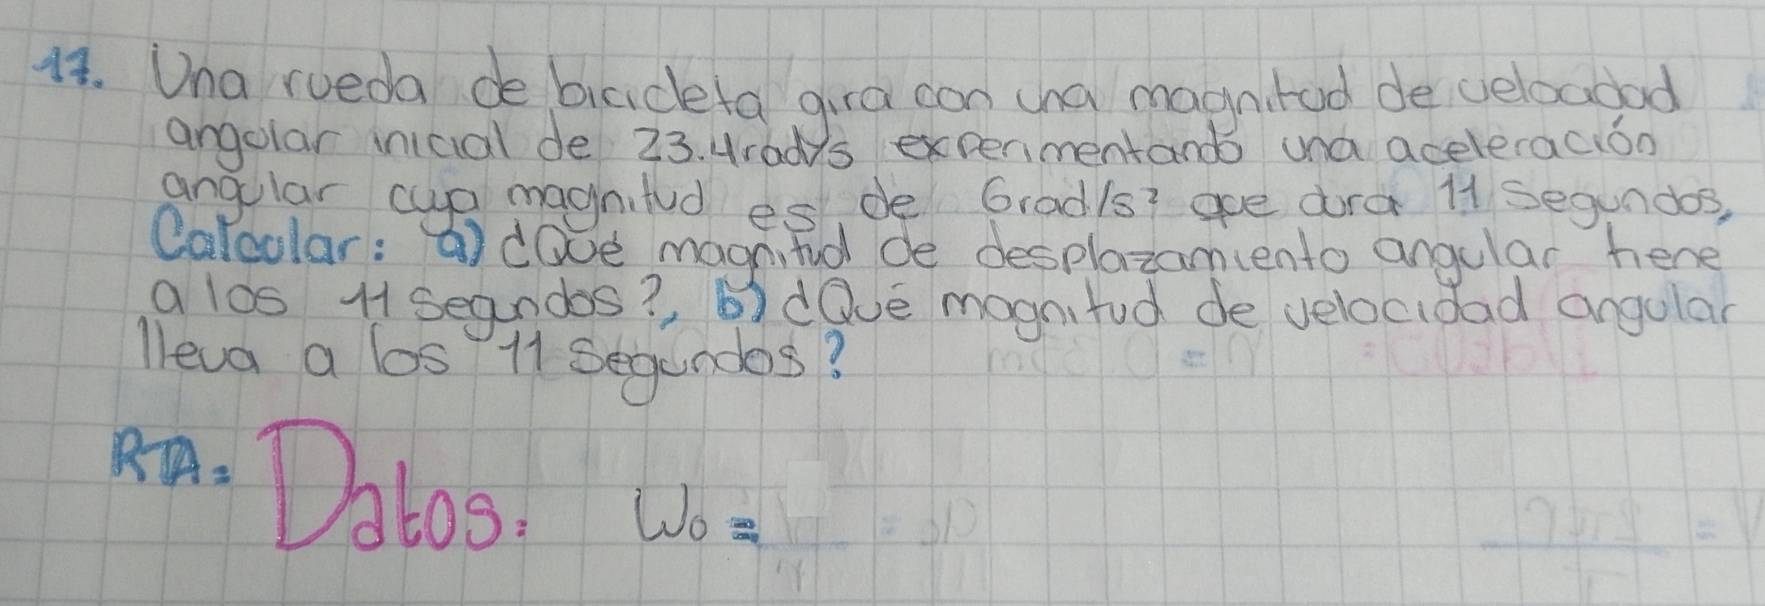 17. Una rueda de bicicleta gira con una magnitud de velocidad
angular inicial de 23.4rad/s experimentando una aceleración
angular cuya magnitud es de 6rad/s² que dura 11 segundos,
Calcular: a) ¿Qué magnitud de desplazamiento angular tiene
a los 11 segundos?, b) ¿Qué magnitud de velocidad angular
lleva a los 11 segundos?
RTA= Datos: Wo =